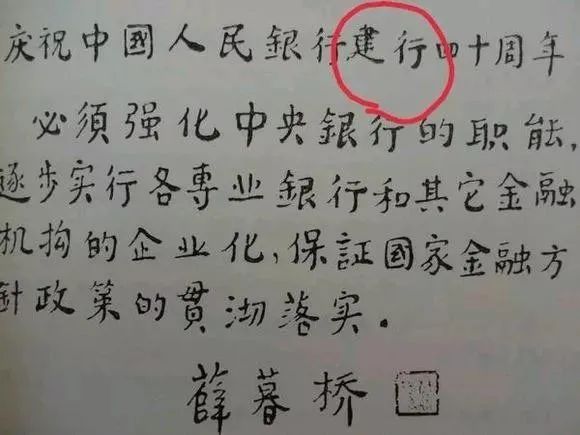 庆祝中國人民銀行建行四十周年
必須强化中央銀行的职能，
逐步实行各專业銀行和其它金融
机构的企业化，保証國家金融方
針政策的貫沏落实。
薛暮桥